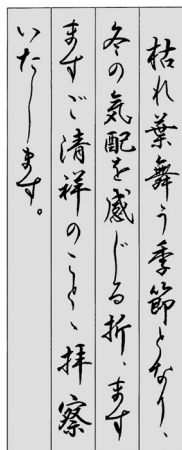 枯れ葉舞う季節となり、
冬の気配を感じる折、ます
ますご清祥のこと、拝察
いたします。